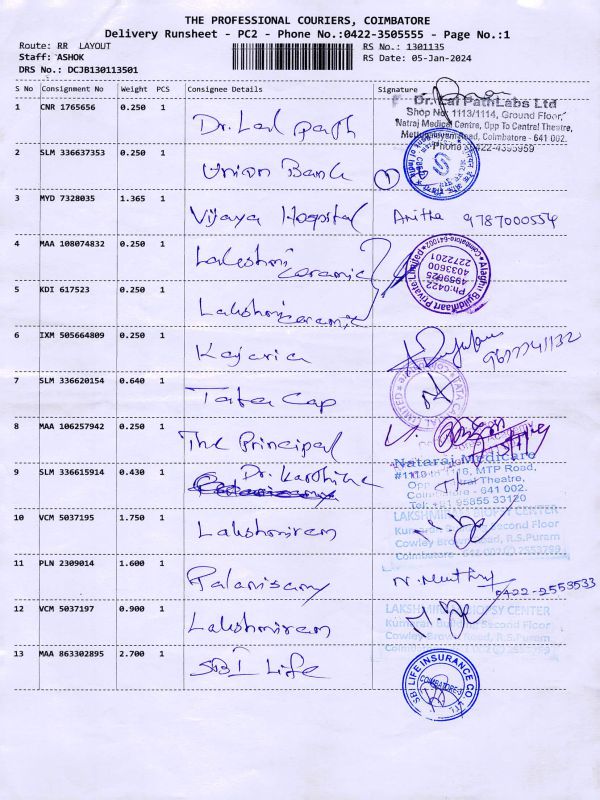 THE PROFESSIONAL COURIERS, COIMBATORE
Delivery Runsheet - PC2 - Phone No.:0422-3505555 - Page No.:1
Route: RR LAYOUT
RS No.: 1301135
Staff: ASHOK
RS Date: 05-Jan-2024
DRS No.: DCJB130113501
S No Consignment No Weight PCS Consignee Details Signature
Dr. Lal PathLabs Ltd
Shop No. 1113/1114, Ground Floor,
Natraj Medical Centre, Opp To Central Theatre,
Mettupalayam Road, Coimbatore - 641 002.
Phone 0422-4355959
1 CNR 1765656 0.250 1 Dr. Lal path
2 SLM 336637353 0.250 1 Union Bank
3 MYD 7328035 1.365 1 Vijaya Hospital Anitha 9787000554
4 MAA 108074832 0.250 1 Lakshmi ceramic
Alaghu Buildmaart Private Limited
Coimbatore-641002
Ph:0422
4959625
4033600
2272201
5 KDI 617523 0.250 1 Lakshmi ceramic
6 IXM 505664809 0.250 1 Kajaria
7 SLM 336620154 0.640 1 Tata Cap
8 MAA 106257942 0.250 1 The Principal
9 SLM 336615914 0.430 1 Dr. Karthika
Nataraj Medicare
#1113 to 1116, MTP Road,
Opp. Central Theatre,
Coimbatore - 641 002.
Tel: +91 95855 33120
10 VCM 5037195 1.750 1 Lakshmiram
LAKSHMIRAM BIOPSY CENTER
Kumaran Building Second Floor
Cowley Brown Road, R.S.Puram
Coimbatore - 641 002 2553799
11 PLN 2309014 1.600 1 Palanisamy 0422-2553533
12 VCM 5037197 0.900 1 Lakshmiram
LAKSHMIRAM BIOPSY CENTER
Kumaran Building Second Floor
Cowley Brown Road, R.S.Puram
Coimbatore - 641 002 2553799
13 MAA 863302895 2.700 1 SBI Life
SBI LIFE INSURANCE CO. LTD
COIMBATORE-3